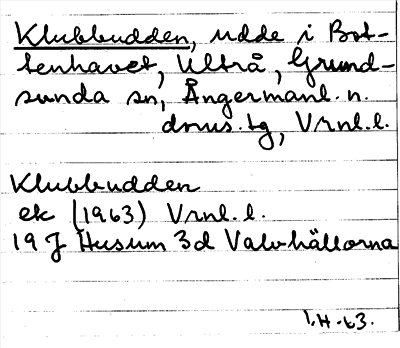 Klubbudden, udde i Bot-
tenhavet, Ultrå, Grund-
sunda sn, Ångermanl. n.
doms. tg, Vrnl. l.
Klubbudden
ek (1963) Vrnl. l.
19 J Husum 3d Valvhällorna
I.H. 63.